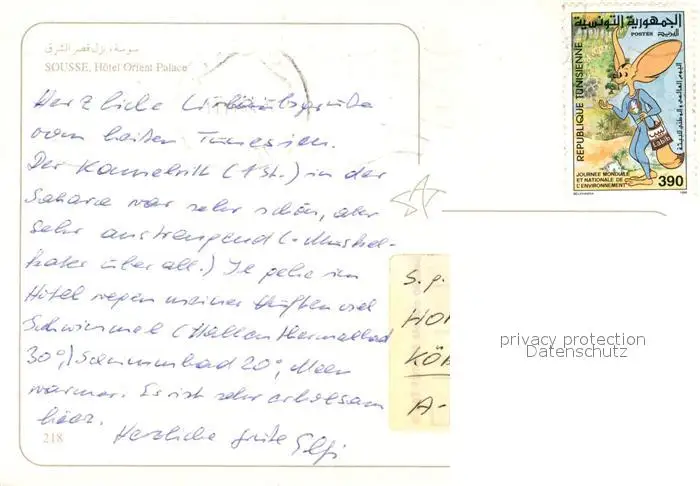 سوسة، نزل قصر الشرق
SOUSSE, Hôtel Orient Palace
Herzliche Urlaubsgrüße
vom heißen Tunesien.
Der Kamelritt (1 St.) in der
Sahara war sehr schön, aber
sehr anstrengend (-Muskel-
kater überall.) Ich gehe im
Hotel wegen meiner Hüften viel
Schwimmen (Hallenthermalbad
30°,) Schwimmbad 20°, Meer
wärmer. Es ist sehr erholsam
hier.
Herzliche Grüße Elfi
218
S.g.
KÖ
A-
الجمهورية التونسية
POSTES البريد
REPUBLIQUE TUNISIENNE
اليوم العالمي والوطني للبيئة
Labib
JOURNEE MONDIALE
ET NATIONALE DE
L'ENVIRONNEMENT
390
privacy protection
Datenschutz